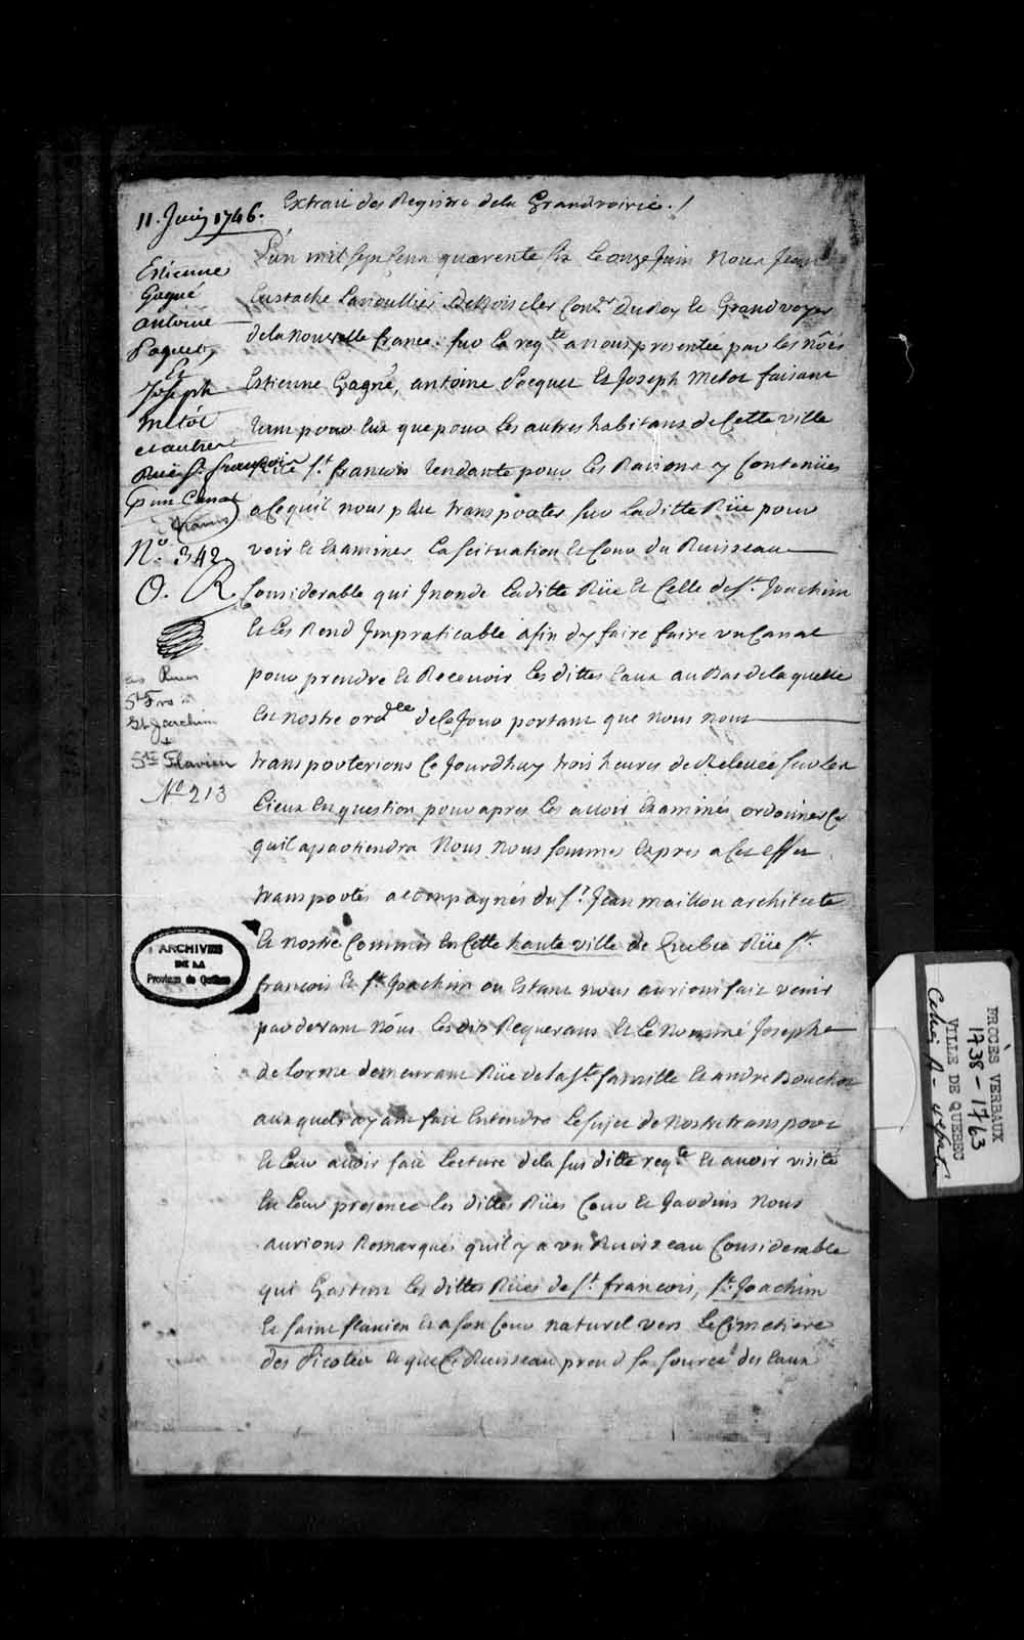 Extrait des Registre dela Grandvoirie./
11. Juin 1746.
Estienne
Gagné
antoine
Paquet,
Et
Joseph
métôt
et autres
Rue St. françois
P un Canal
N.o 342
O. R.
Rues
St Frs
St Joachim
+
St Flavien
No 213
L'an mil sept Cent quarente six le onze Juin Nous Jean
Eustache Lanoullier deBoiscler Con.er du Roy Et Grand voyer
dela nouvelle france. sur la reqte a nous presentée par les nôés
Estienne Gagné, antoine Pacquet Et Joseph metot faisant
tant pour Eux que pour les autres habitans de Cette ville
Rüe St. francois tendante pour les Raisons y Contenües
a Ce quil nous plut transporter sur laditte Rüe pour
voir Et Examiner la scituation Et Cour du Ruisseau
Considerable qui Jnonde laditte Rüe Et Celle de St. Joachim
Et les Rend Jmpraticable afin dy faire faire un Canal
pour prendre Et Recevoir les dittes Eaux au Bas de la quelle
Est nostre ordce de Ce Jour portant que nous nous
transporterions Ce Jourdhuy trois heures de Relevée sur les
Lieux En question pour apres les avoir Examinés ordonner Ce
quil apartiendra Nous Nous sommes Expres a Cet Effet
transportés acompagnés du Sr. Jean maillou architecte
Et nostre Commis En Cette haute ville de Quebec Rüe St.
francois Et St. Joachim ou Estant nous aurions fait venir
par devant Nous les dits Requerans Et le Nommé Josephe
delorme demeurant Rüe de la Ste famille Et andré Bouchos
aux quels ayant fait Entendre le sujet de Nostre transport
Et Leur avoir fait Lecture dela sus ditte reqte Et avoir visité
En Leur presence les dittes Rües Cour Et Jardins Nous
aurions Remarqués quil y a un Ruisseau Considerable
qui les dittes Rües de St. francois, St. Joachim
Et Saint flavien Et a son Cour naturel vers Le Cimetiere
des Picotés Et que Ce Ruisseau prend sa source des Eaux
ARCHIVES
DE LA
Province de Québec
PROCÈS VERBAUX
1738-1763
VILLE DE QUEBEC